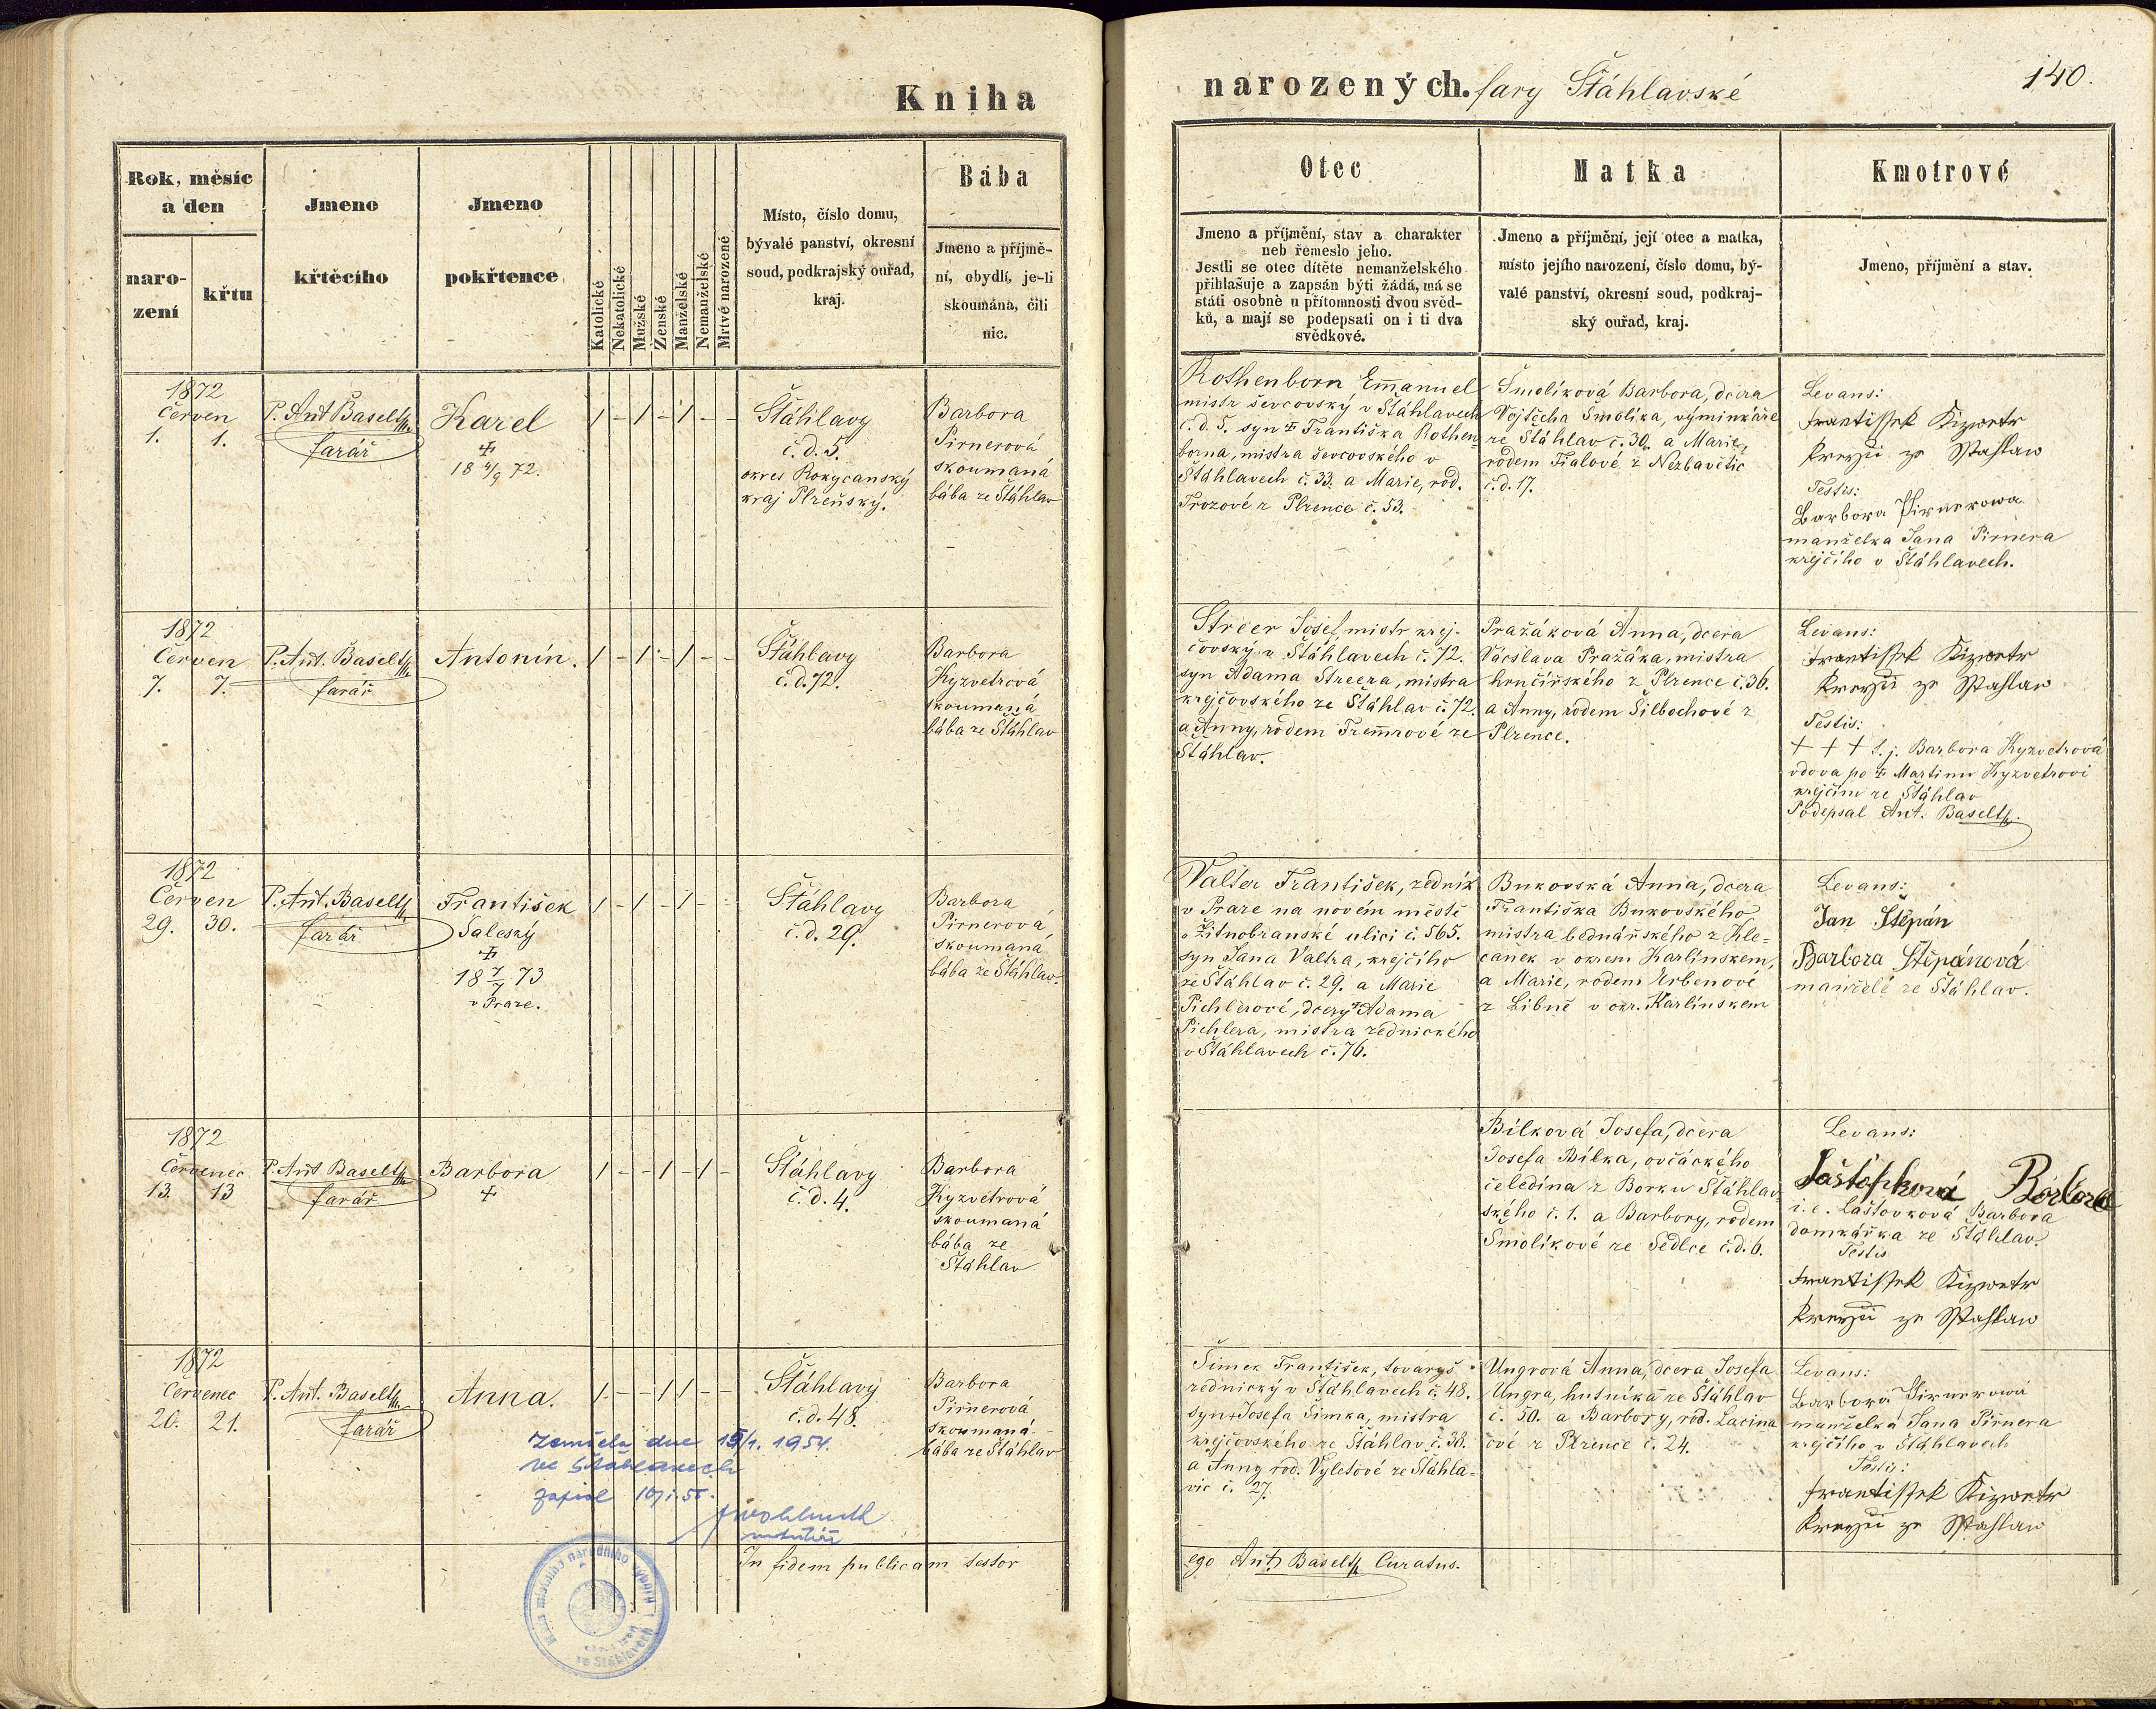 Kniha
narozených. fary Šťáhlavské
140.
Rok, měsíc
a den
naro-
zení
křtu
Jmeno
křtěcího
Jmeno
pokřtence
Katolické
Nekatolické
Mužské
Ženské
Manželské
Nemanželské
Mrtvé narozené
Místo, číslo domu,
bývalé panství, okresní
soud, podkrajský ouřad,
kraj.
Bába
Jmeno a příjmě-
ní, obydlí, je-li
skoumána, čili
nic.
Otec
Jmeno a příjmění, stav a charakter
neb řemeslo jeho.
Jestli se otec dítěte nemanželského
přihlašuje a zapsán býti žádá, má se
státi osobně u přítomnosti dvou svěd-
ků, a mají se podepsati on i ti dva
svědkové.
Matka
Jmeno a příjmění, její otec a matka,
místo jejího narození, číslo domu, bý-
valé panství, okresní soud, podkraj-
ský ouřad, kraj.
Kmotrové
Jmeno, příjmění a stav.
1872
Červen
1. 1.
P. Ant Baselth.
farář
Karel
18 4/9 72.
/ - / - / - -
Šťáhlavy
č. d. 5.
okres Rokycanský
kraj Plzeňský.
Barbora
Pirnerová
skoumaná
bába ze Šťáhlav
Rothenborn Emanuel
mistr ševcovský v Šťáhlavech
č. d. 5. syn Františka Rothen-
borna, mistra ševcovského v
Šťáhlavech č. 33. a Marie, rod.
Trozové z Plzence č. 53.
Šmolíková Barbora, dcera
Vojtěcha Šmolíka, výminkáře
ze Šťáhlav č. 30. a Marie,
rodem Fialové z Nezbavětic
č. d. 17.
Levans:
Frantissek Kizwetr
Kreyzii ze Sstahlaw
Testis:
Barbora Pirnerowa
manželka Jana Pirnera
krejčího v Šťáhlavech.
1872
Červen
7. 7.
P. Ant. Baselth
farář
Antonín.
/ - / - / - -
Šťáhlavy
č. d. 72.
Barbora
Kyzvetrová
skoumaná
bába ze Šťáhlav
Streer Josef, mistr krej-
čovský v Šťáhlavech č. 72.
syn Adama Streera, mistra
krejčovského ze Šťáhlav č. 72.
a Anny, rodem Tremrové ze
Šťáhlav.
Pražáková Anna, dcera
Vácslava Pražáka, mistra
hrnčířského z Plzence č. 36.
a Anny, rodem Šilbochové z
Plzence.
Levans:
Frantissek Kizwetr
Kreyzii ze Sstahlaw
Testis:
+ + + t. j. Barbora Kyzvetrová
vdova po Martinu Kyzvetrovi
krejčím ze Šťáhlav
Podepsal Ant. Baselth.
1872
Červen
29. 30.
P. Ant. Baselth
farář
František
Saleský
18 7/7 73
v Praze.
/ - / - / - -
Šťáhlavy
č. d. 29.
Barbora
Pirnerová
skoumaná
bába ze Šťáhlav.
Valter František, zedník
v Praze na novém městě
v Žitnobranské ulici č. 565.
syn Jana Valtra, krejčího
ze Šťáhlav č. 29. a Marie
Pichlerové, dcery Adama
Pichlera, mistra zednického
v Šťáhlavech č. 76.
Bukovská Anna, dcera
Františka Bukovského,
mistra bednářského z Kle-
canek v okresu Karlínském,
a Marie, rodem Urbenové
z Libně v okr. Karlínském
Levans:
Jan Štěpán
Barbora Štěpánová
manželé ze Šťáhlav.
1872
Červenec
13. 13
P. Ant Baselth
farář
Barbora
/ - - / - / -
Šťáhlavy
č. d. 4.
Barbora
Kyzvetrová
skoumaná
bába ze
Šťáhlav
Bílková Josefa, dcera
Josefa Bílka, ovčáckého
čeledína z Borku Šťáhlav-
ského č. 1. a Barbory, rodem
Šmolíkové ze Sedlce č. d. 6.
Levans:
Barbora
i. e. Lástovková Barbora
domkářka ze Šťáhlav.
Testis
Frantissek Kizwetr
Kreyzii ze Sstahlaw
1872
Červenec
20. 21.
P. Ant. Baselth
farář
Anna.
/ - - / / - -
Šťáhlavy
č. d. 48.
Barbora
Pirnerová
skoumaná
bába ze Šťáhlav
Zemřela dne 1954.
ve Šťáhlavech
zapsal
matrikář
Šimek František, tovaryš
zednický v Šťáhlavech č. 48.
syn Josefa Šimka, mistra
krejčovského ze Šťáhlav č. 38.
a Anny rod. Výletové ze Šťáhla-
vic č. 27.
Ungrová Anna, dcera Josefa
Ungra, hutníka ze Šťáhlav
č. 50. a Barbory, rod. Lacina-
čové z Plzence č. 24.
Levans:
Barbora Pirnerowa
manželka Jana Pirnera
krejčího v Šťáhlavech
Testis:
Frantissek Kizwetr
Kreyzii ze Sstahlaw
In fidem publicam testor
ego Ant. Baselth Curatus.
místního národního výboru
ve Šťáhlavech